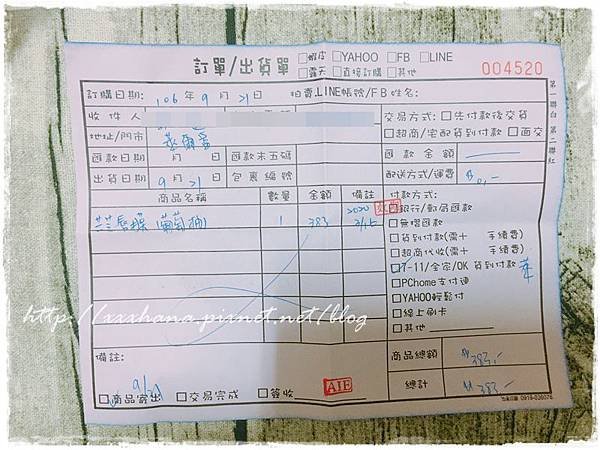 訂單/出貨單 □蝦皮 □YAHOO □FB □LINE
□露天 □直接訂購 □其他
004520
訂購日期: 106年9月21日 拍賣.LINE帳號/FB姓名:
收件人
交易方式:□先付款後交貨
□超商/宅配貨到付款 □面交
地址/門市
匯款日期 月 日 匯款末五碼 匯款金額
出貨日期 9月21日 包裹編號 配送方式/運費 $0.-
商品名稱 數量 金額 備註
(葡萄柚) 1 383 2020
付款方式:
□銀行/郵局匯款
□無摺匯款
□貨到付款(需+ 手續費)
□超商代收(需+ 手續費)
□7-11/全家/OK 貨到付款
□PChome支付連
□YAHOO輕鬆付
□線上刷卡
□其他
http://xxxhana.pixnet.net/blog
備註:
商品總額 $383.-
總計 $383.-
□商品寄出 □交易完成 □簽收
第一聯白 第二聯紅